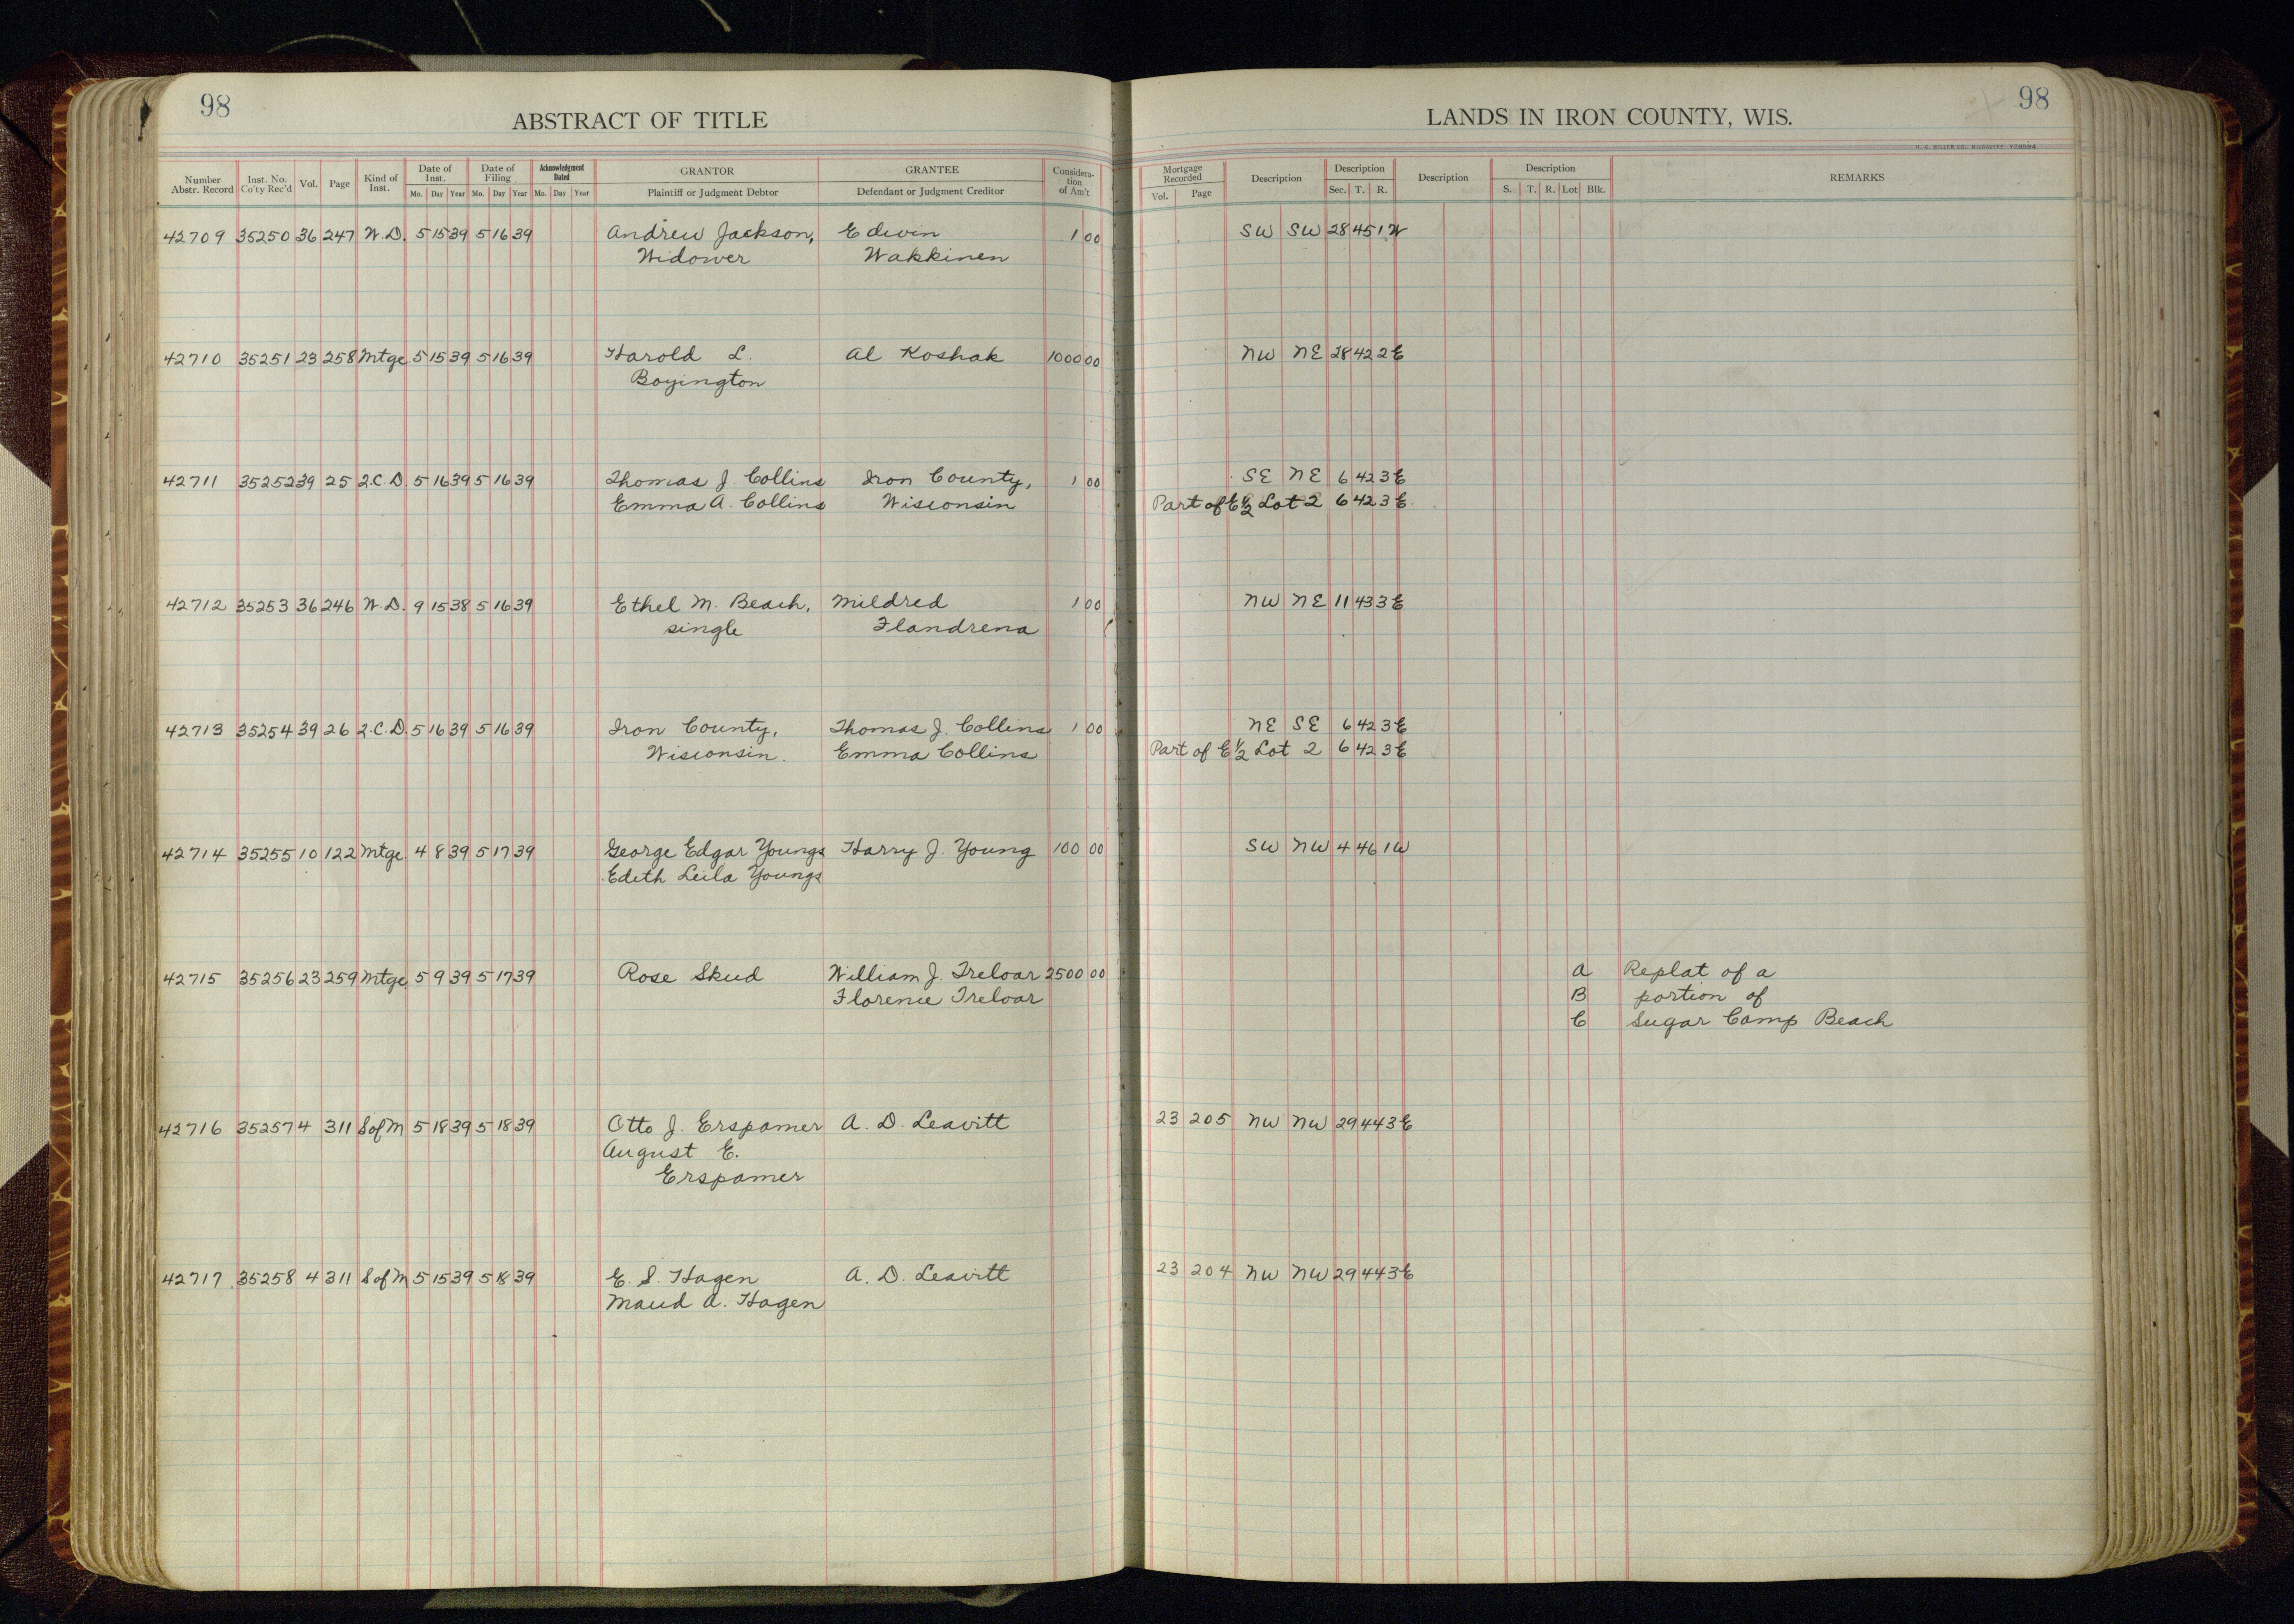 98
ABSTRACT OF TITLE
Number Abstr. Record Inst. No. Co'ty Rec'd Vol. Page Kind of Inst. Date of Inst. Mo. Day Year Date of Filing Mo. Day Year Acknowledgment Dated Mo. Day Year GRANTOR Plaintiff or Judgment Debtor GRANTEE Defendant or Judgment Creditor Considera-tion of Am't
42709 35250 36 247 W.D. 5 15 39 5 16 39 Andrew Jackson, Edwin 1 00
Widower Wakkinen
42710 35251 23 258 Mtge 5 15 39 5 16 39 Harold L. Al Koshak 1000 00
Boyington
42711 35252 39 25 Q.C.D. 5 16 39 5 16 39 Thomas J. Collins Iron County, 1 00
Emma A. Collins Wisconsin
42712 35253 36 246 W.D. 9 15 38 5 16 39 Ethel M. Beach, Mildred 1 00
single Flandrena
42713 35254 39 26 Q.C.D. 5 16 39 5 16 39 Iron County, Thomas J. Collins 1 00
Wisconsin. Emma Collins
42714 35255 10 122 Mtge 4 8 39 5 17 39 George Edgar Youngs Harry J. Young 100 00
Edith Leila Youngs
42715 35256 23 259 Mtge 5 9 39 5 17 39 Rose Skud William J. Treloar 2500 00
Florence Treloar
42716 35257 4 311 S of M 5 18 39 5 18 39 Otto J. Erspamer A. D. Leavitt
August E.
Erspamer
42717 35258 4 311 S of M 5 15 39 5 18 39 E. S. Hagen A. D. Leavitt
Maud A. Hagen
98
LANDS IN IRON COUNTY, WIS.
Mortgage Recorded Vol. Page Description Description Sec. T. R. Description Description S. T. R. Lot Blk. REMARKS
SW SW 28 45 1W
NW NE 28 42 2E
SE NE 6 42 3E
Part of E½ Lot 2 6 42 3E.
NW NE 11 43 3E
NE SE 6 42 3E
Part of E½ Lot 2 6 42 3E
SW NW 4 46 1W
A Replat of a
B portion of
C Sugar Camp Beach
23 205 NW NW 29 44 3E
23 204 NW NW 29 44 3E